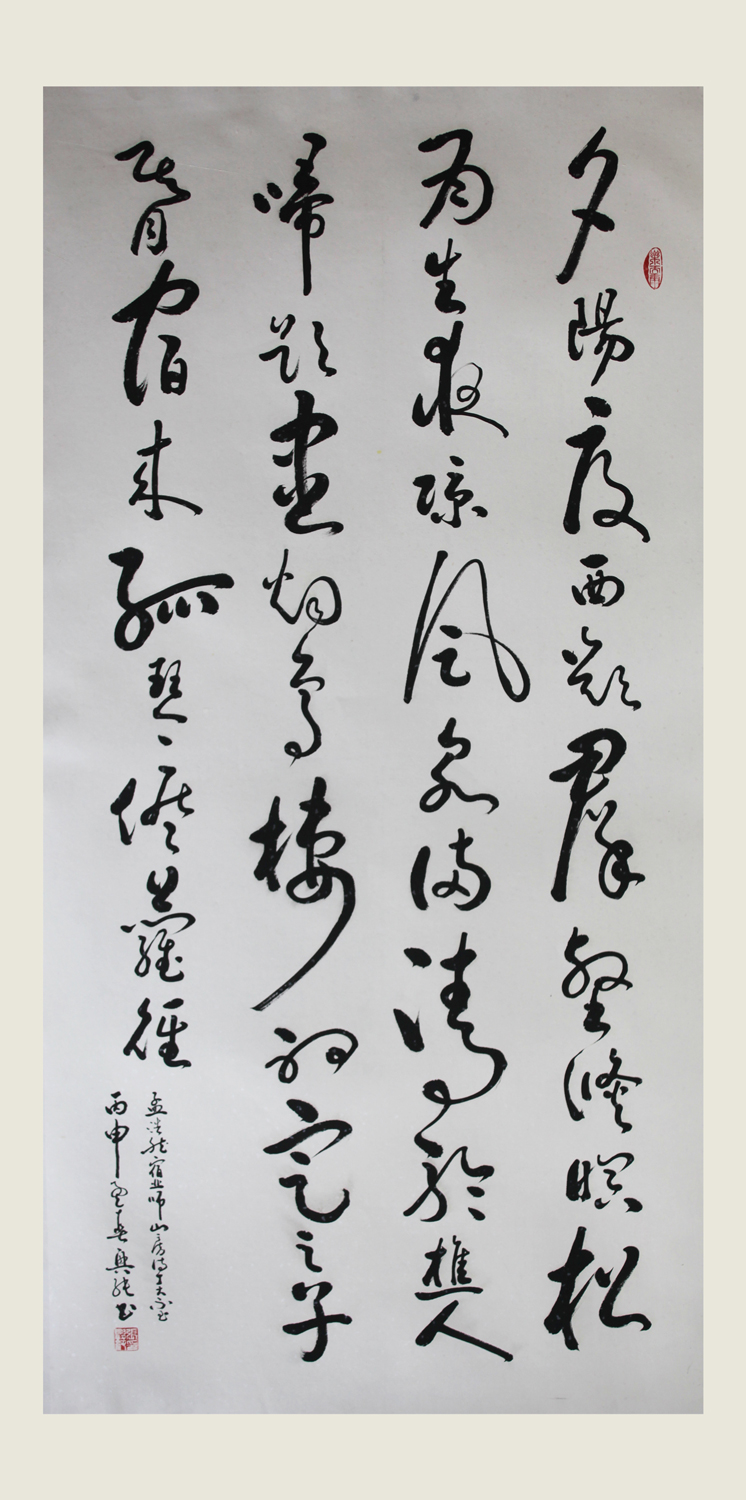 夕陽度西嶺群壑倏暝松
月生夜涼風泉滿清聽樵人
歸欲盡烟鳥棲初定之子
期宿來孤琴候蘿徑
孟浩然宿业師山房待丁大不至
丙申孟春興书